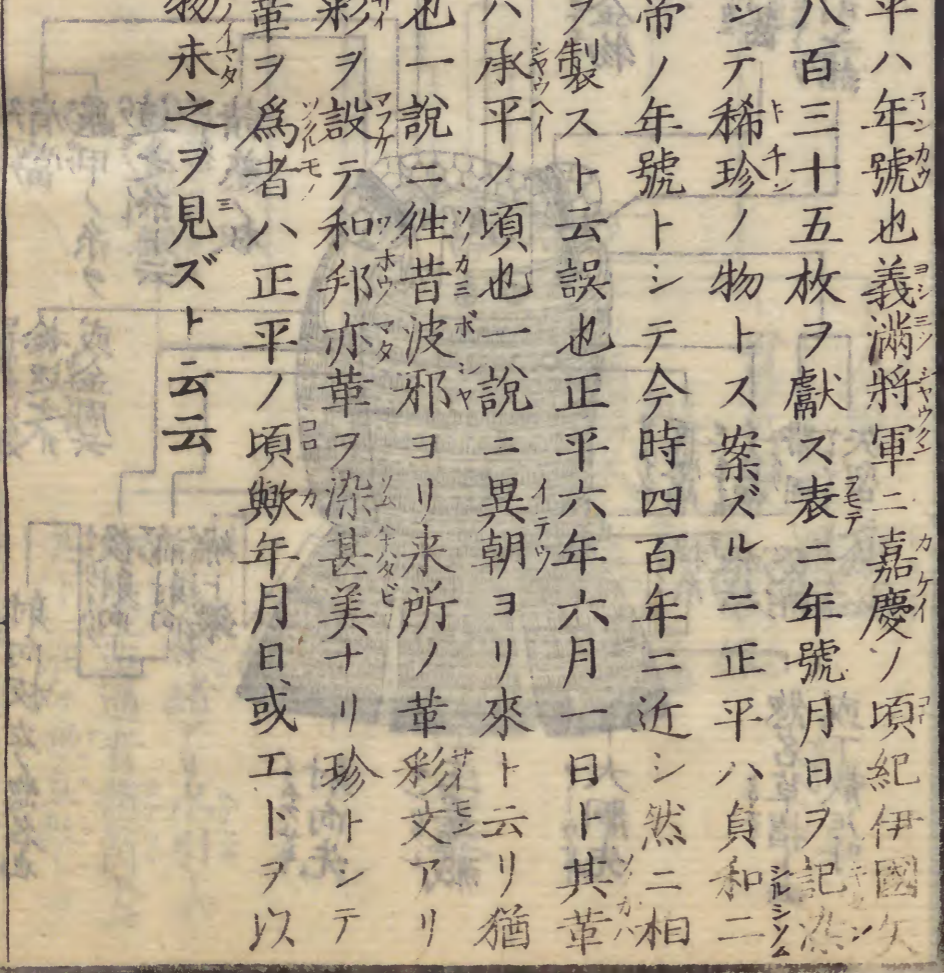 平ハ年號也義滿將軍ニ嘉慶ノ頃紀伊國矢
八百三十五枚ヲ獻ス表ニ年號月日ヲ記染
シテ稀珍ノ物トス案ズルニ正平ハ貞和二
帝ノ年號トシテ今時四百年ニ近シ然ニ相
ヲ製スト云誤也正平六年六月一日ト其革
ハ承平ノ頃也一說ニ異朝ヨリ來ト云リ猶
也一說ニ徃昔波邪ヨリ来所ノ革彩文アリ
彩ヲ設テ和邦亦革ヲ染甚美ナリ珍トシテ
革ヲ爲者ハ正平ノ頃歟年月日或エトヲ以
物未之ヲ見ズト云云